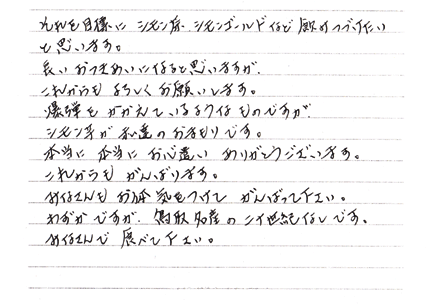 それを目標に シモン茶 シモンゴールドなど 飲みつづけたい
と思います。
長いおつきあいになると思いますが、
これからも よろしく お願いします。
爆弾を かかえている ような ものですが
シモン芋が 私達の お守りです。
本当に 本当に お心遣い ありがとうございます。
これからも がんばります。
みなさんも お体 気をつけて がんばって下さい。
わずかですが、鳥取名産の 二十世紀なしです。
みなさんで 食べて下さい。